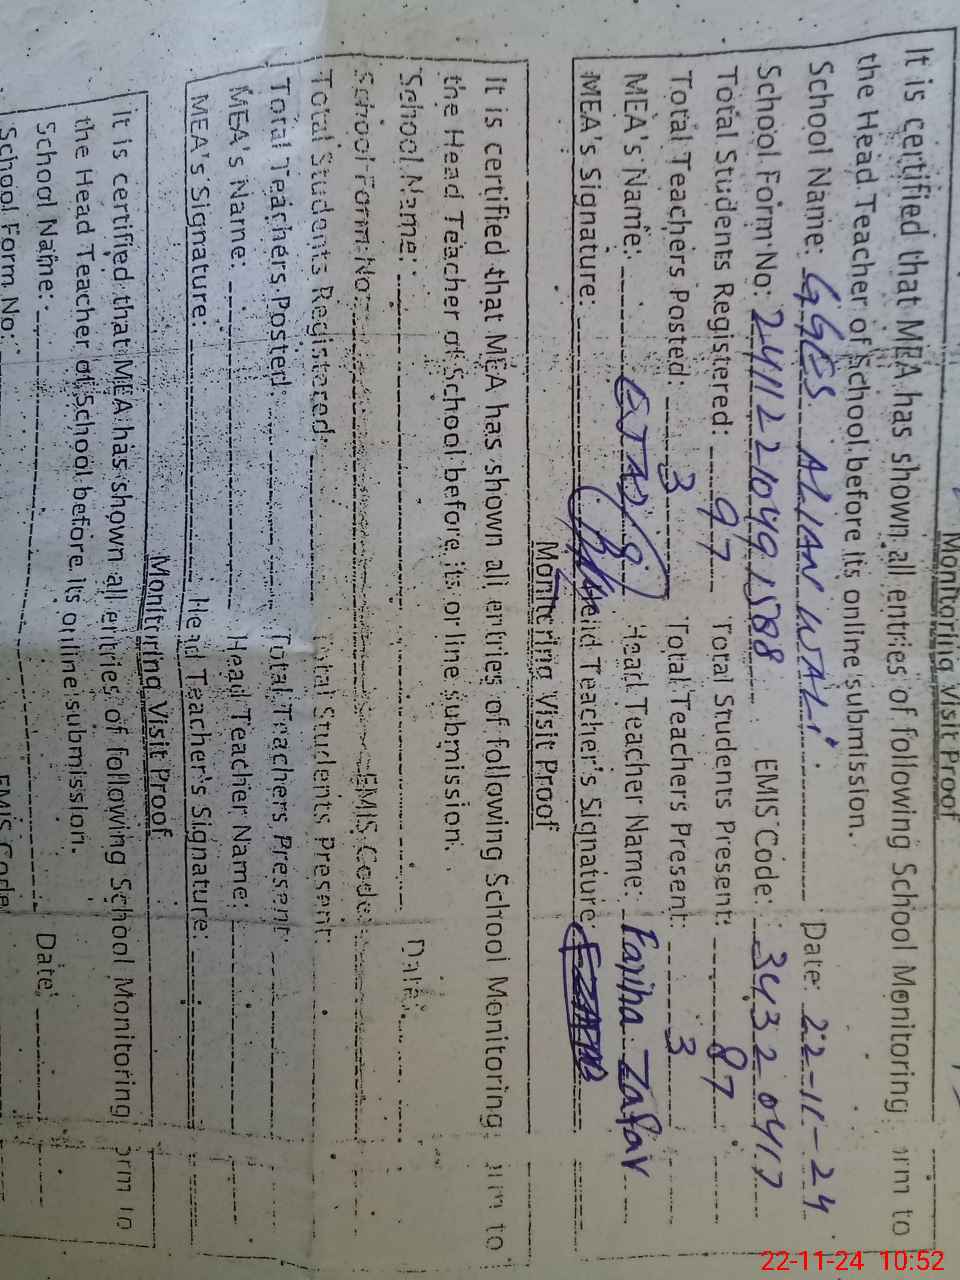 Monitoring Visit Proof
It is certified that MEA has shown all entries of following School Monitoring to
the Head Teacher of School before its online submission.
School Name: GGES ALIAN WALI Date: 22-11-24
School Form No: EMIS Code: 34320417
Total Students Registered: 97 Total Students Present: 87
Total Teachers Posted: 3 Total Teachers Present: 3
MEA's Name: Head Teacher Name: Fariha Zafar
MEA's Signature: Head Teacher's Signature:
Monitoring Visit Proof
It is certified that MEA has shown all entries of following School Monitoring to
the Head Teacher of School before its online submission.
School Name: Date:
School Form No: EMIS Code:
Total Students Registered: Total Students Present:
Total Teachers Posted: Total Teachers Present:
MEA's Name: Head Teacher Name:
MEA's Signature: Head Teacher's Signature:
Monitoring Visit Proof
It is certified that MEA has shown all entries of following School Monitoring to
the Head Teacher of School before its online submission.
School Name: Date:
School Form No: EMIS Code
22-11-24 10:52